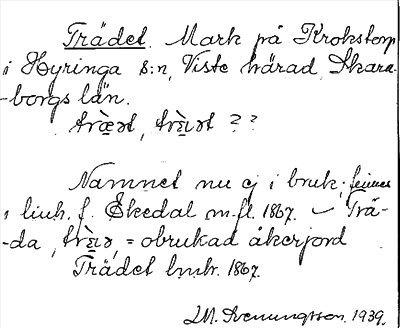 Trädet. Mark på Krokstorp
i Hyringa s:n, Viste härad, Skara-
-borgs län.
trä̀ət, trä̀ət ??
Namnet nu ej i bruk; finnes
i liuh. f. Ekedal m.fl. 1867. – Trä-
-da, = obrukad åkerjord
Trädet lmtr. 1867.
M. Svenungsson. 1939.